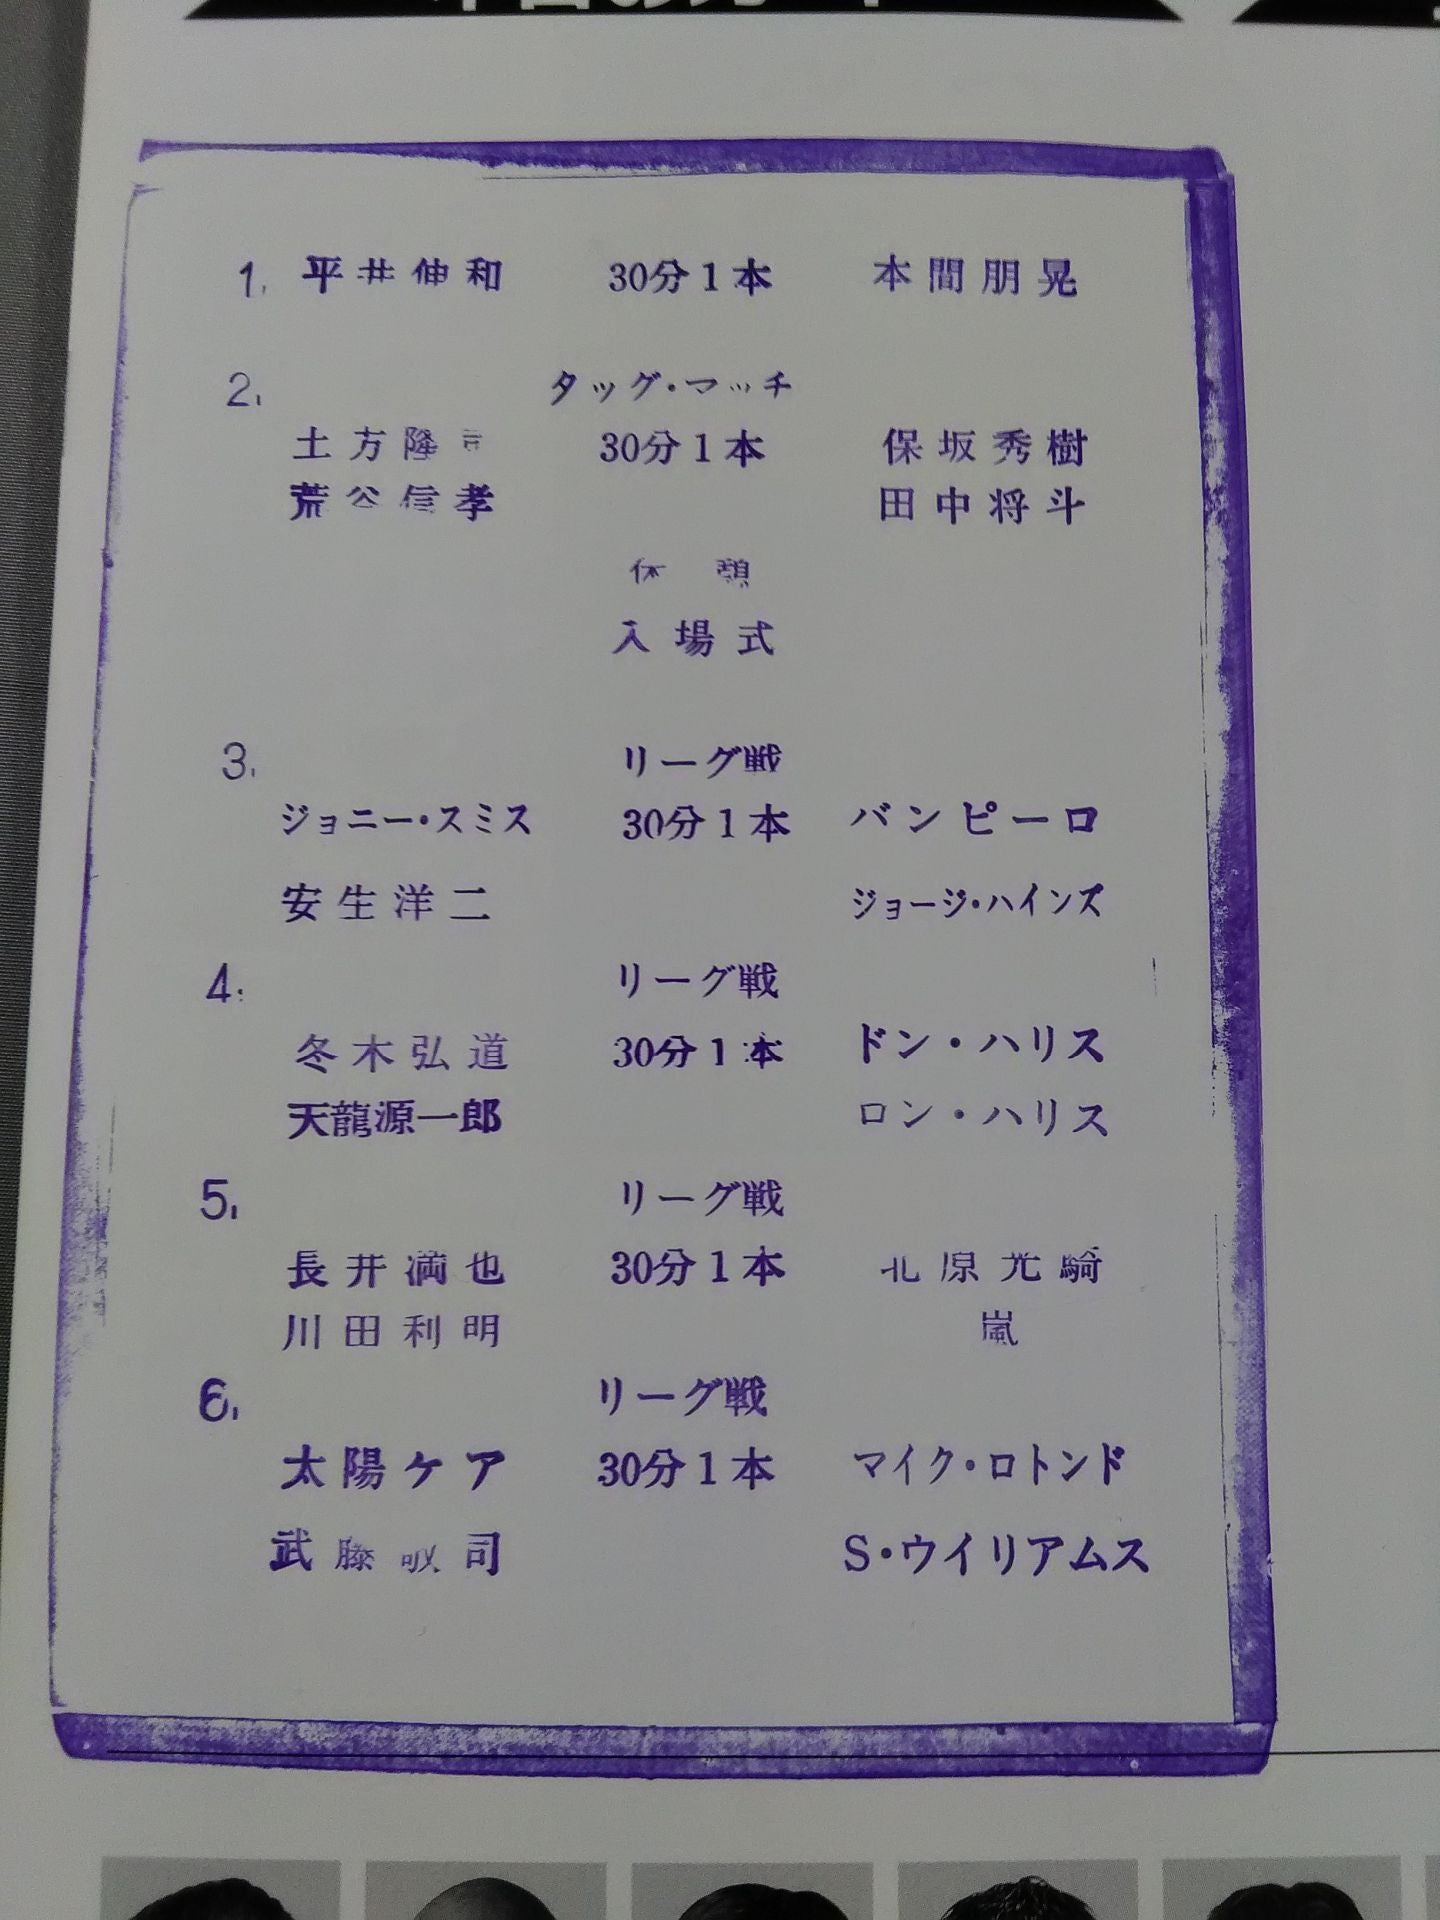 1. 平井伸和 30分1本 本間朋晃
2. タッグ・マッチ
土方隆司 30分1本 保坂秀樹
荒谷信孝 田中将斗
休憩
入場式
3. リーグ戦
ジョニー・スミス 30分1本 バンピーロ
安生洋二 ジョージ・ハインズ
4. リーグ戦
冬木弘道 30分1本 ドン・ハリス
天龍源一郎 ロン・ハリス
5. リーグ戦
長井満也 30分1本 北原光騎
川田利明 嵐
6. リーグ戦
太陽ケア 30分1本 マイク・ロトンド
武藤敬司 S・ウイリアムス